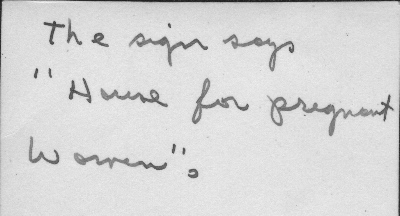 The sign says
"House for pregnant
Women".